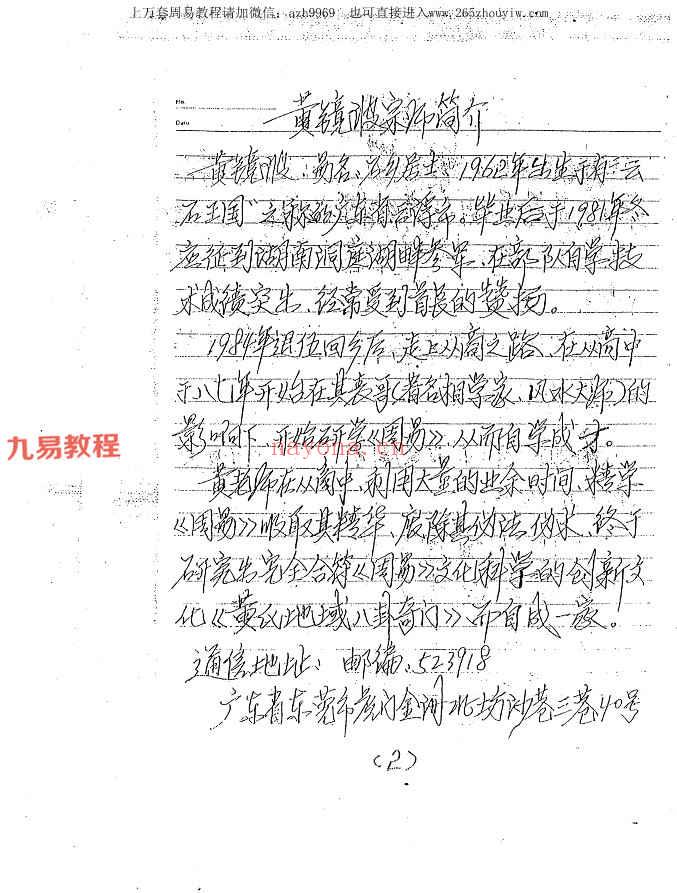 上万套周易教程请加微信：azh9969 也可直接进入www.265zhouyiw.com
No.
Date
黄镜波宗师简介
黄镜波：易名、石乡居士、1962年出生于有"云
石王国"之称的广东省云浮市。毕业后于1981年冬
应征到湖南洞庭湖畔参军、在部队自学技
术成绩突出、经常受到首长的赞扬。
1984年退伍回乡后、走上从商之路、在从商中
于八七年开始在其表哥（著名相学家、风水大师）的
影响下、开始研学《周易》、从而自学成才。
九易教程
nayona.cn
黄老师在从商中、利用大量的业余时间、精学
《周易》吸取其精华、废除其伪法伪术、终于
研究出完全合符《周易》文化科学的创新文
化《黄氏地域八卦奇门》、而自成一家。
通信地址：邮编：523918
广东省东莞市虎门金洲北坊沙巷三巷40号
(2)